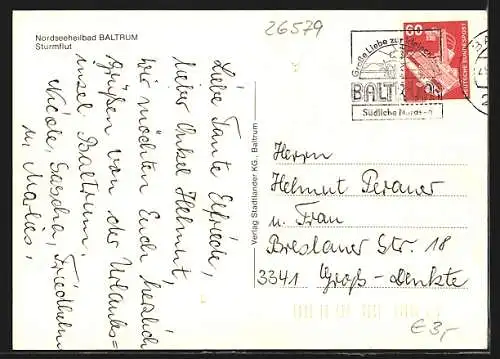 Nordseeheilbad BALTRUM
Sturmflut
26579
Liebe Tante Elfriede,
lieber Onkel Helmut,
wir möchten Euch herzlich
Grüßen von der Urlaubs=
insel Baltrum.
Nicole, Sascha, Friedhelm
u. Marlies.
Verlag Stadtlander KG., Baltrum
Große Liebe zur
BALTRUM
Südliche
60
DEUTSCHE BUNDESPOST
Herrn
Helmut
u. Frau
Breslauer Str. 18
3341 Groß-Denkte
€3,-